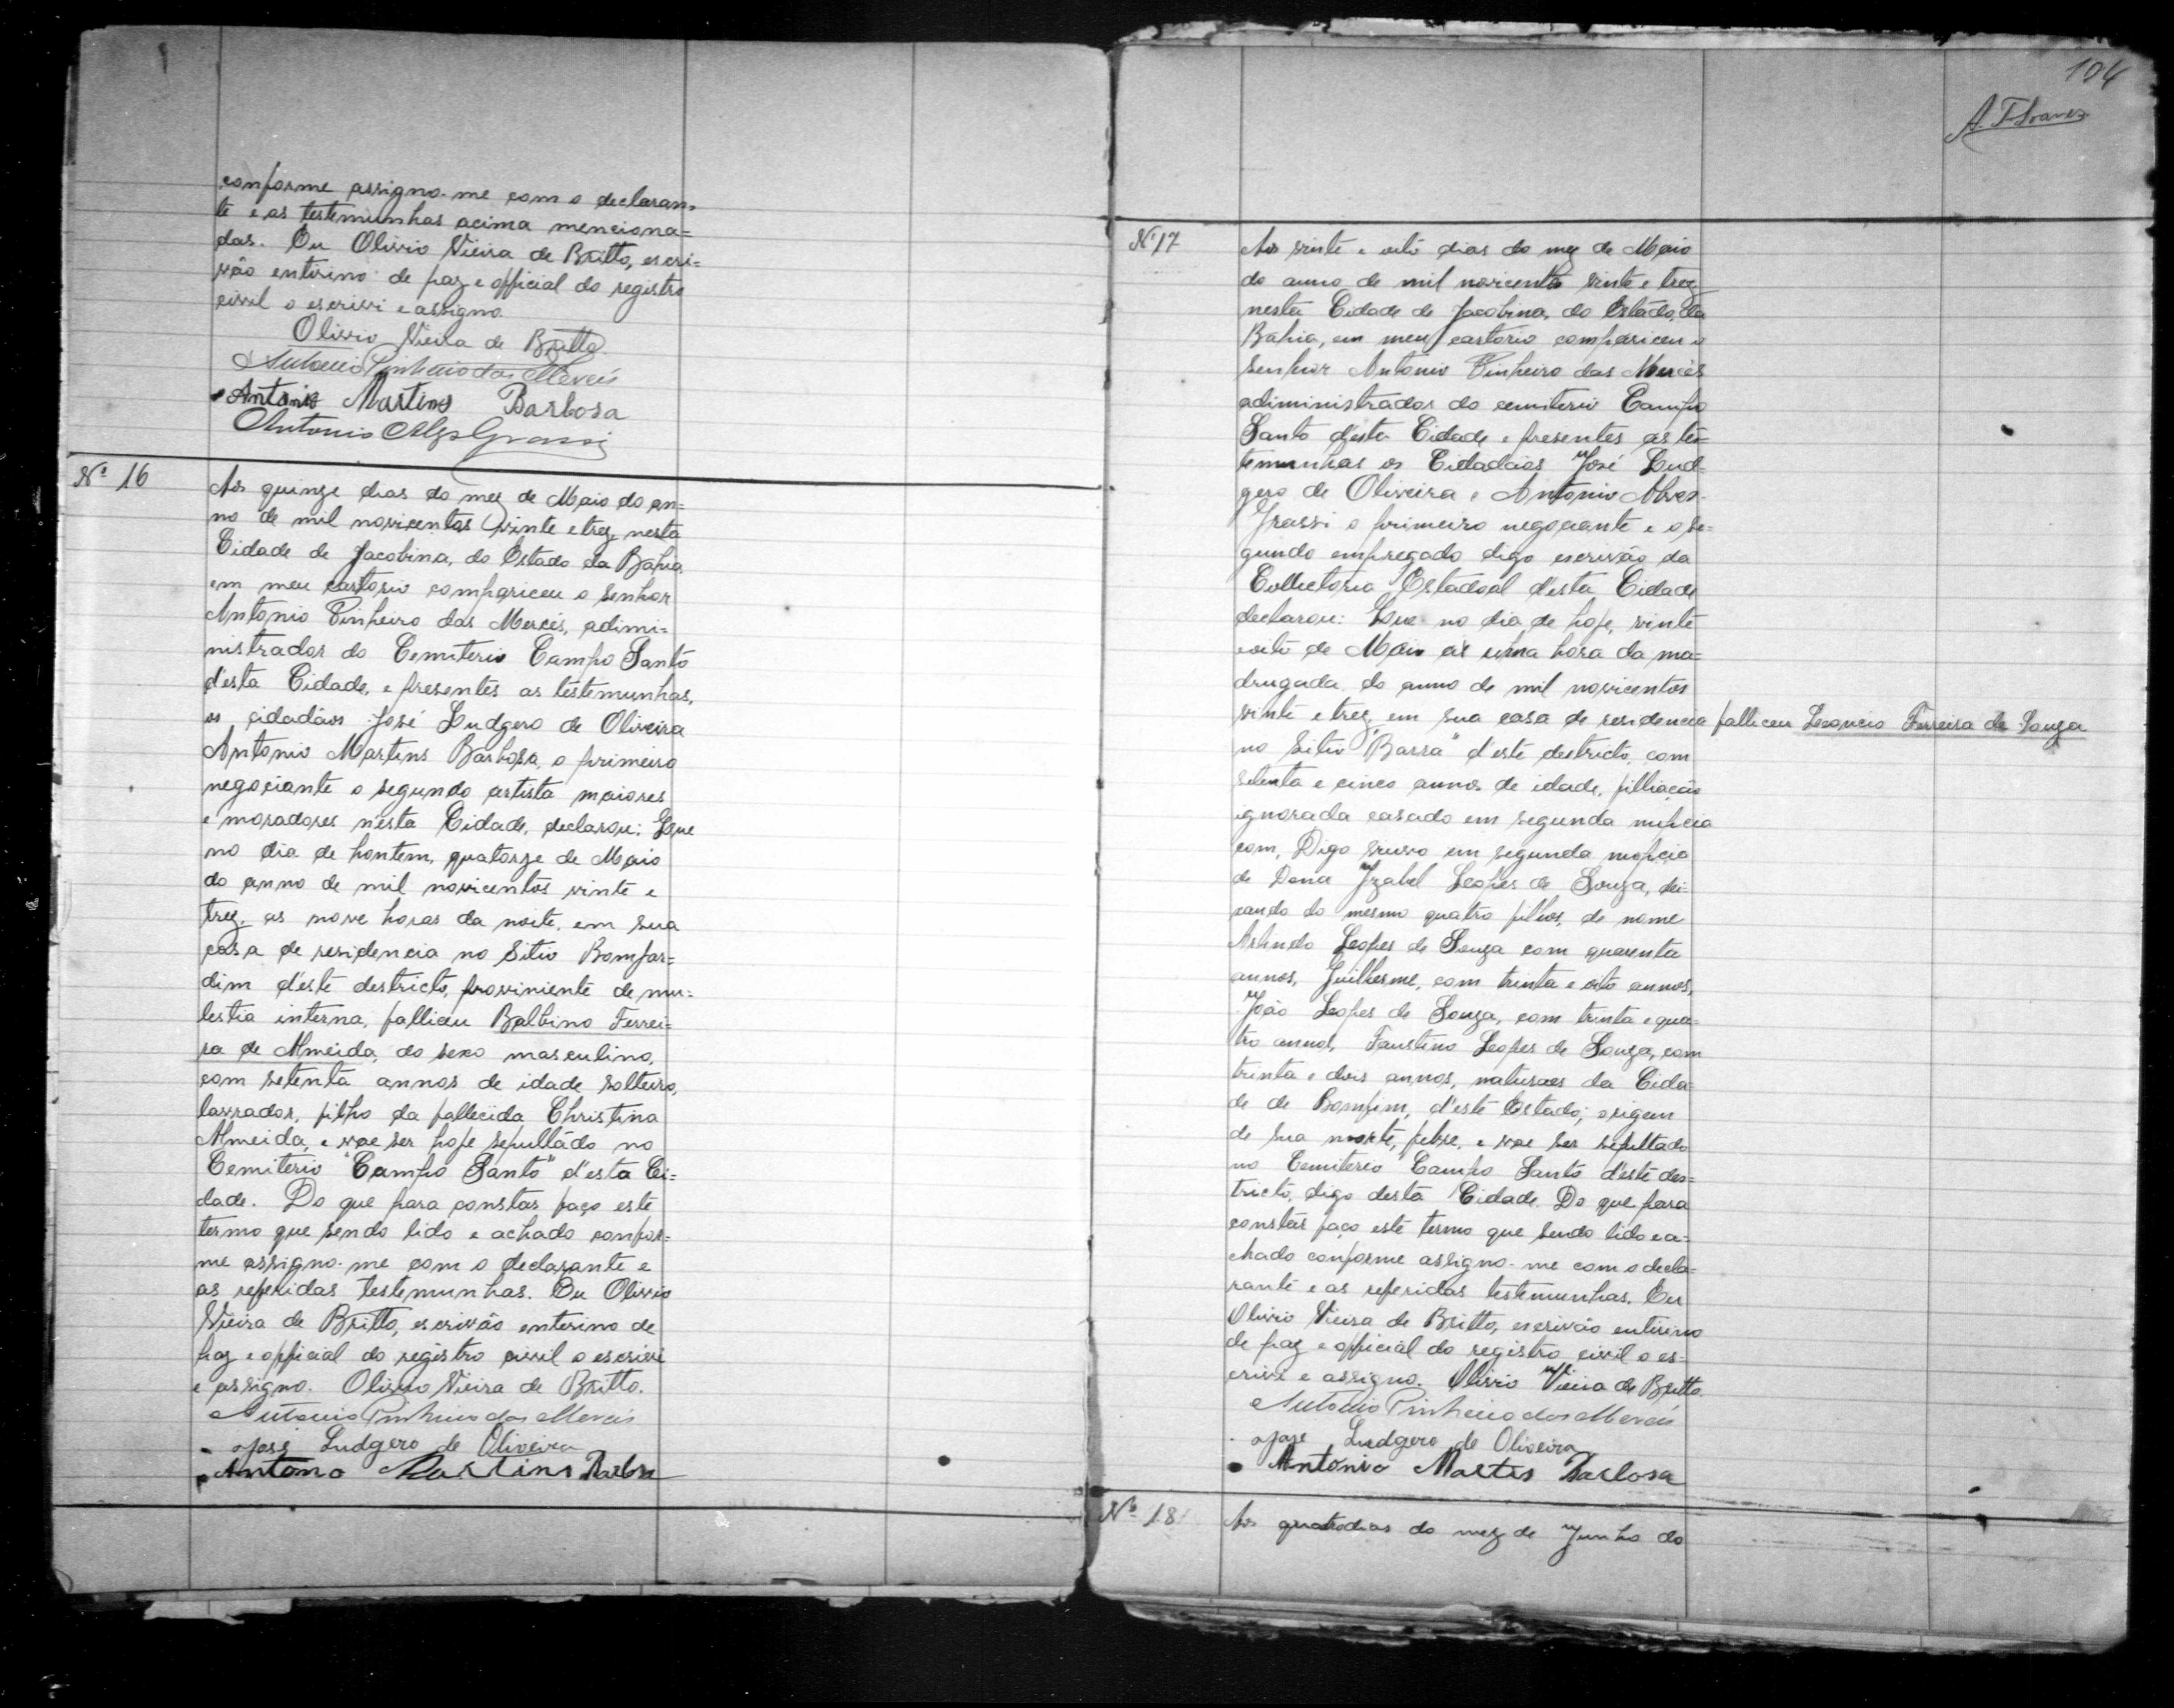 conforme assigno-me com o declaran=
te e as testemunhas acima menciona=
das. Eu Olivio Vieira de Britto, escri=
vão enterino de paz e official do registro
civil o escrivi e assigno.
Olivio Vieira de Britto.
Antonio Pinheiro das Mercês
Antonio Martins Barbosa
Antonio Alves Grassi
Nº 16
Aos quinze dias do mez de Maio do an=
no de mil novicentos vinte e trez, nesta
Cidade de Jacobina, do Estado da Bahia,
em meu cartorio compariceu o senhor
Antonio Pinheiro das Mercês, adimi=
nistrador do Cemiterio Campo Santo
d'esta Cidade, e presentes as testemunhas,
os cidadãos José Ludgero de Oliveira
Antonio Martins Barbosa, o primeiro
negociante o segundo artista maiores
e moradores n'esta Cidade, declarou: Que
no dia de hontem, quatorze de Maio
do anno de mil novicentos vinte e
trez, as nove horas da noite, em sua
casa de residencia no Sitio Bompar=
dim d'este destricto, proviniente de mu=
lestia interna, falliceu Balbino Ferrei=
ra de Almeida, do sexo masculino,
com setenta annos de idade solteiro,
lavrador, filho da fallecida Christina
Almeida, e vae ser hoje sepultado no
Cemiterio "Campo Santo" d'esta Ci=
dade. Do que para constar faço este
termo que sendo lido e achado confor=
me assigno-me com o declarante e
as referidas testemunhas. Eu Olivio
Vieira de Britto, escrivão enterino de
paz e official do registro civil o escrivi
e assigno. Olivio Vieira de Britto.
Antonio Pinheiro das Mercês
José Ludgero de Oliveira
Antonio Martins Barbosa
104
Nº 17
Aos vinte e oito dias do mez de Maio
do anno de mil novicentos vinte e trez
nesta Cidade de Jacobina, do Estado, da
Bahia, em meu cartorio compariceu o
senhor Antonio Pinheiro das Mercês
adiministrador do cemiterio Campo
Santo d'esta Cidade e presentes as tes=
temunhas os Cidadãos José Lud=
gero de Oliveira e Antonio Alves
Grassi o primeiro negociante e o se=
gundo empregado digo escrivão da
Collectoria Estadoal d'esta Cidade
declarou: Que no dia de hoje, vinte
oito de Maio as uma hora da ma=
drugada do anno de mil novicentos
vinte e trez, em sua casa de residencia falliceu Leoncio Ferreira de Souza
no Sitio "Barra" d'este destricto, com
setenta e cinco annos de idade, filliação
ignorada casado em segunda nupcia
com, Digo viuvo em segunda nupcia
de Dona Izabel Lopes de Souza, dei=
xando do mesmo quatro filhos, de nome
Arlindo Lopes de Souza com quarenta
annos, Guilherme, com trinta e oito annos,
João Lopes de Souza, com trinta e qua=
tro annos, Faustino Lopes de Souza, com
trinta e dois annos, naturaes da Cida=
de de Bomfim, d'este Estado; origem
de sua morte, febre, e vae ser sepultado
no Cemiterio Campo Santo d'este des=
tricto, digo desta Cidade. Do que para
constar faço este termo que sendo lido e a=
chado conforme assigno-me com o decla=
rante e as referidas testemunhas. Eu
Olivio Vieira de Britto, escrivão entirino
de paz e official do registro civil o es=
crivi e assigno. Olivio Vieira de Britto
Antonio Pinheiro das Mercês
José Ludgero de Oliveira
Antonio Martis Barbosa
Nº 18
Aos quatro dias do mez de Junho do